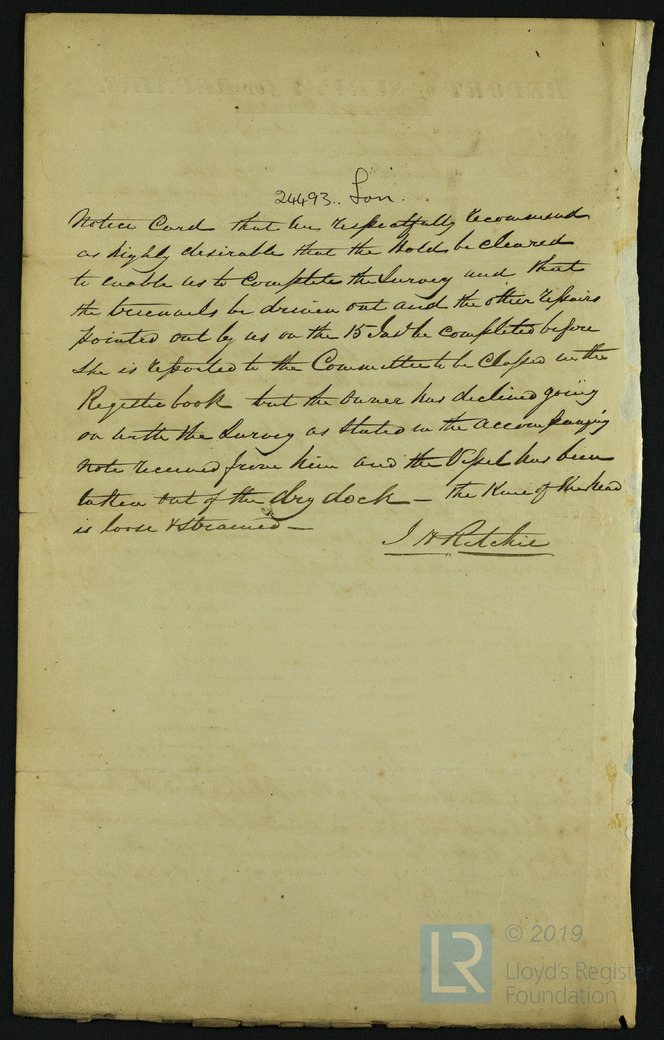 24493.. Lon.
Notice Card that we respectfully recommend
as highly desirable that the Hold be cleared
to enable us to complete the Survey and that
the treenails be driven out and the other repairs
pointed out by us on the 15 Inst be completed before
she is reported to the Committee to be classed in the
Register book but the owner has declined going
on with the Survey as stated in the accompanying
note received from him and the Vessel has been
taken out of the dry dock — The Knee of the head
is loose & strained —
J H Ritchie
LR © 2019
Lloyd's Register
Foundation